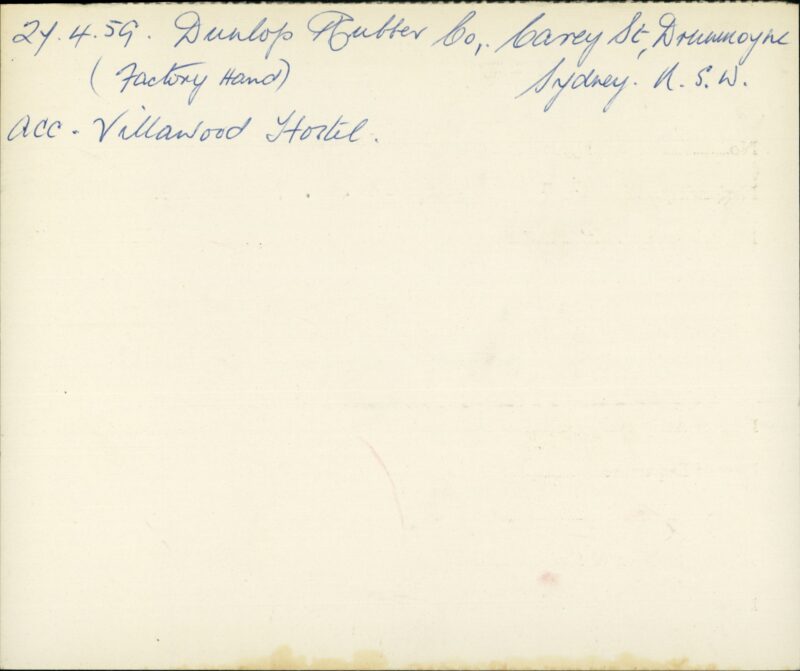 27.4.59. Dunlop Rubber Co,. Carey St, Drummoyne
(Factory Hand) Sydney. N.S.W.
Acc - Villawood Hostel.